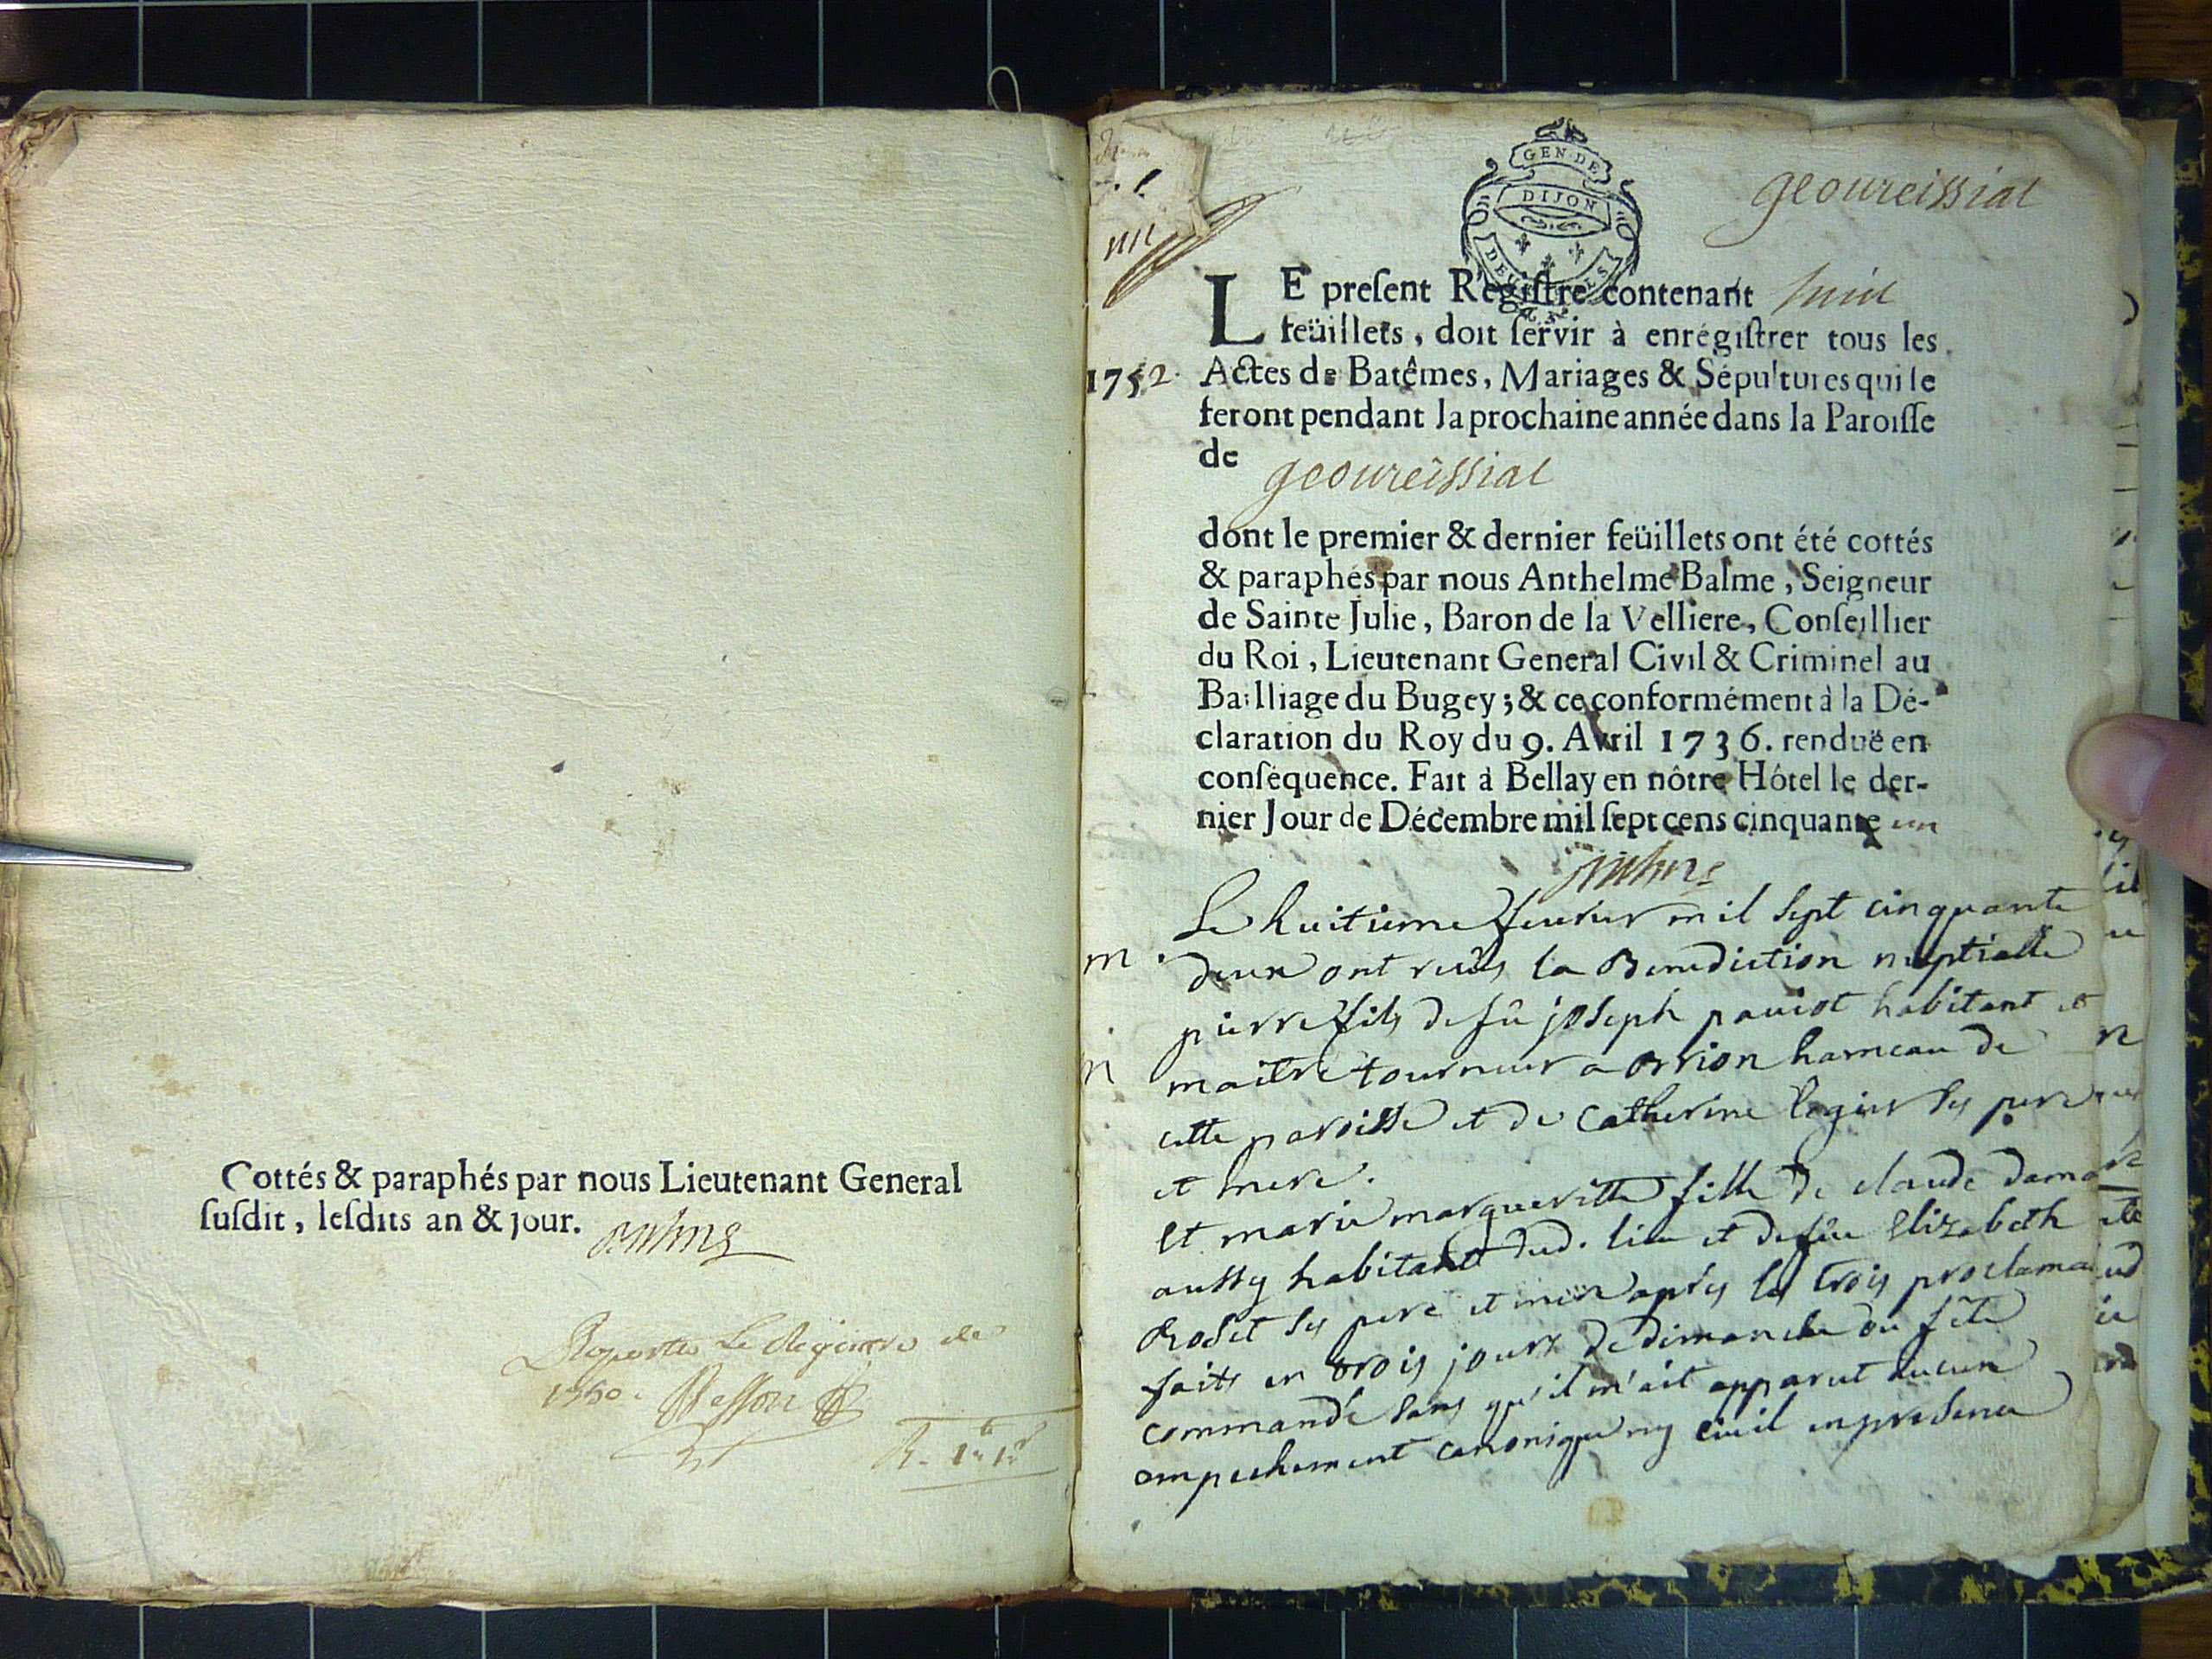 Cottés & paraphés par nous Lieutenant General
ſuſdit, leſdits an & jour.
Raporté Le Regiſtre de
1750. Besson
GEN·DE
DIJON
geoureissiat
LE preſent Regiſtre contenant huit
feüillets, doit ſervir à enrégiſtrer tous les
1752. Actes de Batêmes, Mariages & Sépultures qui ſe
feront pendant la prochaine année dans la Paroiſſe
de geoureissiat
dont le premier & dernier feüillets ont été cottés
& paraphés par nous Anthelme Balme, Seigneur
de Sainte Julie, Baron de la Velliere, Conſeillier
du Roi, Lieutenant General Civil & Criminel au
Bailliage du Bugey; & ce conformément à la Dé-
claration du Roy du 9. Avril 1736. renduë en
conſéquence. Fait à Bellay en nôtre Hôtel le der-
nier Jour de Décembre mil ſept cens cinquante un
Le huitieme feurier mil sept cinquante
m. deux ont reçus la Benediction nuptialle
pierre fils de fû joseph pauiot habitant et
maitre tourneur a orrion hameau de
cette paroisse et de Catherine legier ses pere
et mere.
Et marie margueritte fille de claude dama
aussy habitant dud. lieu et de fûe Elizabeth
Roset ses pere et mere apres les trois proclama
faits en trois jours de dimanche ou fête
commandé sans qu'il m'ait apparut aucun
ompechement canonique ny civil en presence